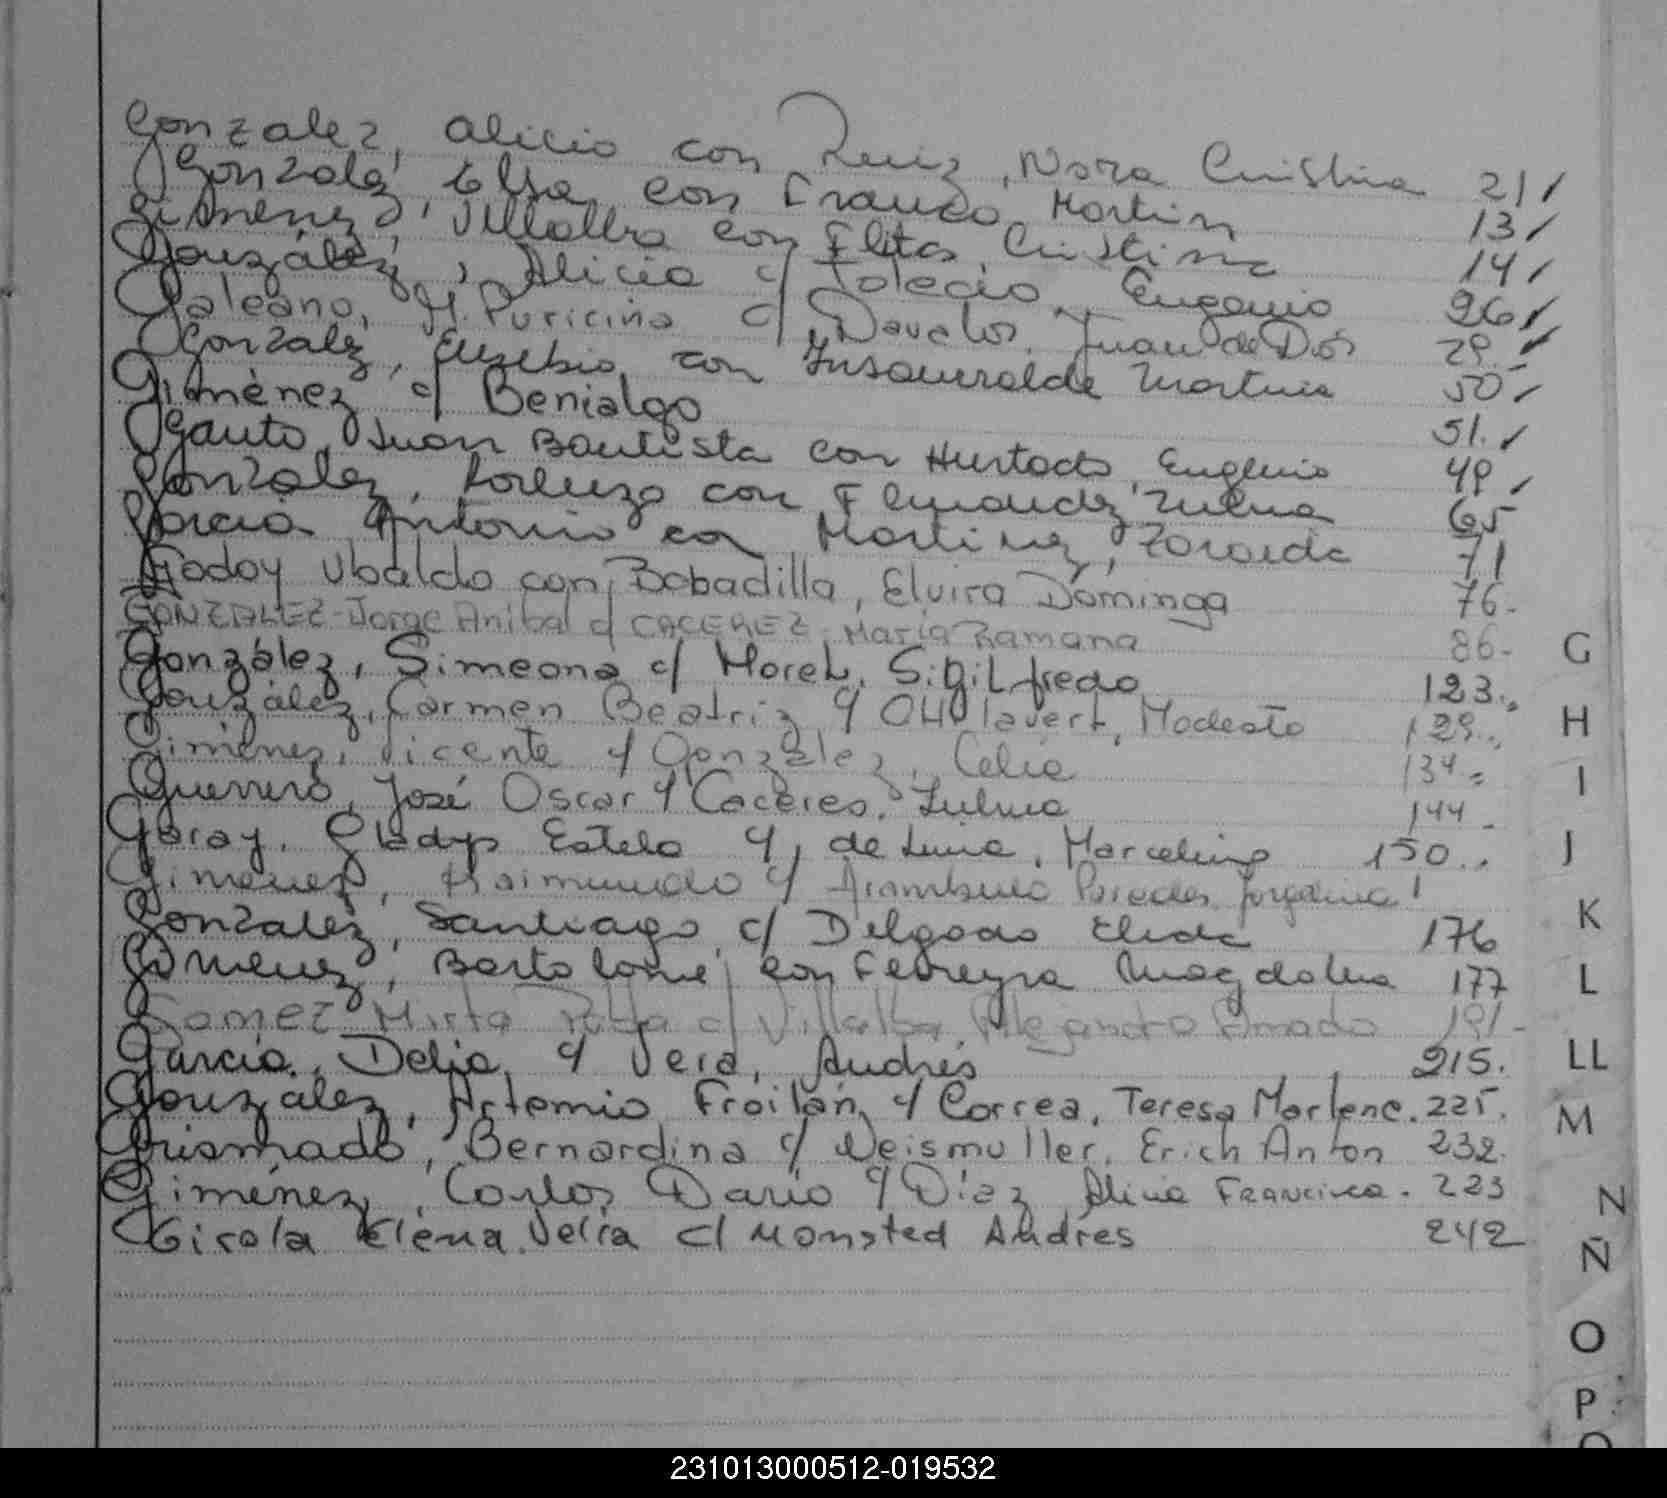 Gonzalez, Alicio con Ruiz, Nora Cristina 21/
Gonzalez, Elsa con Franco Martin 13/
Gimenez, Villalba con Fleitas Cristina 14/
González, Alicia c/ Toledo, Eugenio 26/
Galeano, M. Puricina c/ Davalos, Juan de Dios 29./
Gonzalez, Eusebio con Insaurralde Martina 50/
Giménez c/ Benialgo 51./
Gauto, Juan Bautista con Hurtado, Eugenia 49/
Gonzalez, Lorenzo con Fernandez Zulma 65
Garcia Antonio con Martinez, Zoraida 71
Godoy Ubaldo con Bobadilla, Elvira Dominga 76-
GONZALEZ-Jorge Anibal c/ CACEREZ-María Ramona 86-
González, Simeona c/ Morel, Sigilfredo 123.
González, Carmen Beatriz c/ Modesto 129.
Giménez, Vicente c/ González, Celia 134=
Guerrero, José Oscar c/ Caceres, Zulma 144-
Garay, Gladys Estela c/ de Luna, Marcelino 150..
Gimenez, Raimundo c/ Aramburu Paredes
Gonzalez, Santiago c/ Delgado Elida 176
Gimenez, Bartolome con Ferreyra Magdalena 177
Gomez Mirta c/ Villalba, Alejandro Amado 191-
García, Delia c/ Vera, Andrés 215.
González, Artemio Froilán c/ Correa, Teresa Marlene. 225.
Grismado, Bernardina c/ Weismuller, Erich Anton 232.
Giménez, Carlos Darío c/ Díaz, Alicia Francisca. 223
Girola Elena Velia c/ Monsted Andres 242
G
H
I
J
K
L
LL
M
N
Ñ
O
P
231013000512-019532